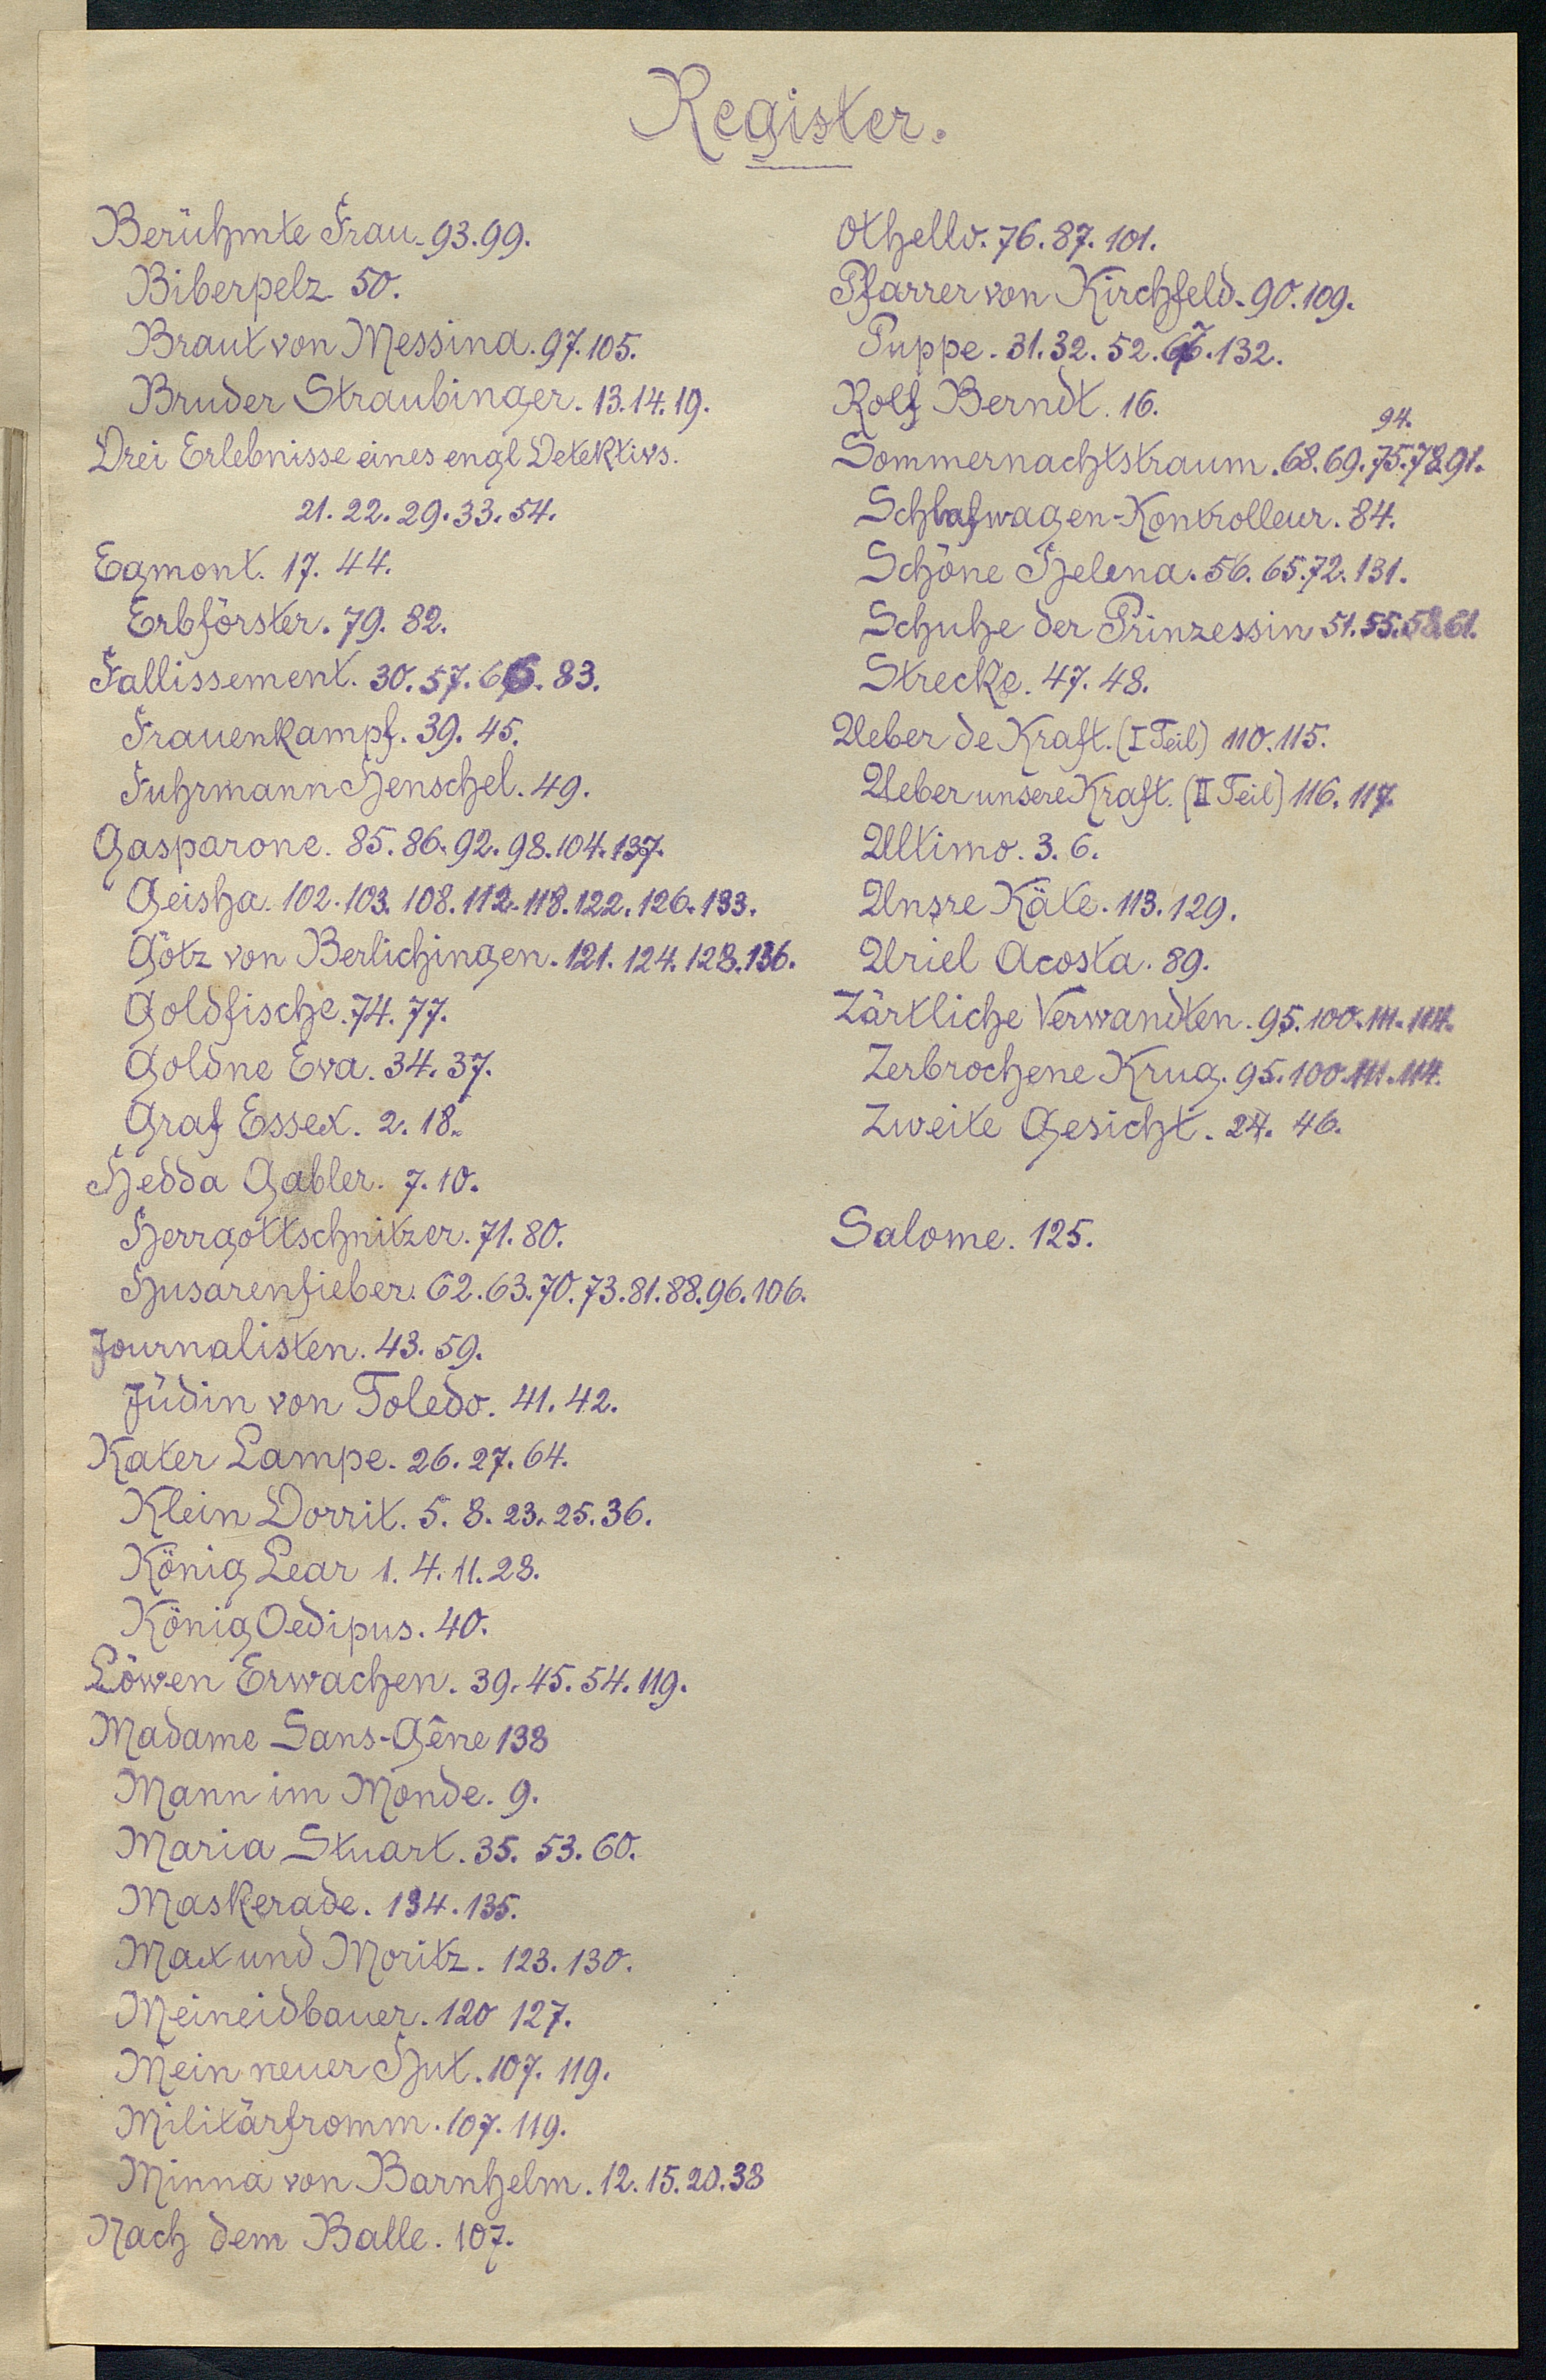 Register.
Berühmte Frau. 93. 99.
Biberpelz 50.
Braut von Messina. 97. 105.
Bruder Straubinger. 13. 14. 19.
Drei Erlebnisse eines engl Detektivs.
21. 22. 29. 33. 54.
Egmont. 17. 44.
Erbförster. 79. 82.
Fallissement. 30. 57. 66. 83.
Frauenkampf. 39. 45.
Fuhrmann Henschel. 49.
Gasparone. 85. 86. 92. 98. 104. 137.
Geisha. 102. 103. 108. 112. 118. 122. 126. 133.
Götz von Berlichingen. 121. 124. 128. 136.
Goldfische. 74. 77.
Goldne Eva. 34. 37.
Graf Essex. 2. 18.
Hedda Gabler. 7. 10.
Herrgottschnitzer. 71. 80.
Husarenfieber. 62. 63. 70. 73. 81. 88. 96. 106.
Journalisten. 43. 59.
Jüdin von Toledo. 41. 42.
Kater Lampe. 26. 27. 64.
Klein Dorrit. 5. 8. 23. 25. 36.
König Lear 1. 4. 11. 28.
König Oedipus. 40.
Löwen Erwachen. 39. 45. 54. 119.
Madame Sans-Gêne 138
Mann im Monde. 9.
Maria Stuart. 35. 53. 60.
Maskerade. 134. 135.
Max und Moritz. 123. 130.
Meineidbauer. 120 127.
Mein neuer Hut. 107. 119.
Militärfromm. 107. 119.
Minna von Barnhelm. 12. 15. 20. 38
Nach dem Balle. 107.
Othello. 76. 87. 101.
Pfarrer von Kirchfeld. 90. 109.
Puppe. 31. 32. 52. 67. 132.
Rolf Berndt. 16.
94.
Sommernachtstraum. 68. 69. 75. 78. 91.
Schlafwagen-Kontrolleur. 84.
Schöne Helena. 56. 65. 72. 131.
Schuhe der Prinzessin 51. 55. 58. 61.
Strecke. 47. 48.
Ueber de Kraft. (I Teil) 110. 115.
Ueber unsere Kraft. (II Teil) 116. 117.
Ultimo. 3. 6.
Unsre Käte. 113. 129.
Uriel Acosta. 89.
Zärtliche Verwandten. 95. 100. 111. 114.
Zerbrochene Krug. 95. 100. 111. 114.
Zweite Gesicht. 24. 46.
Salome. 125.